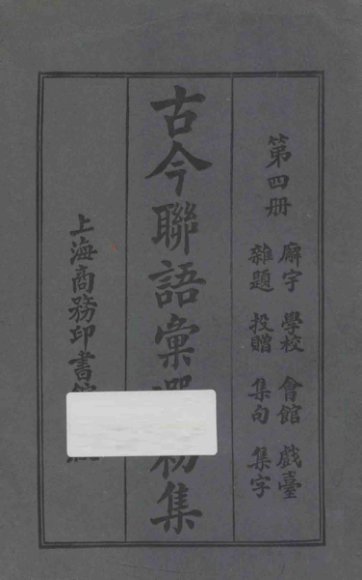 第四册
廨字 學校 會館 戲臺
雜題 投贈 集句 集字
古今聯語彙選初集
上海商務印書館